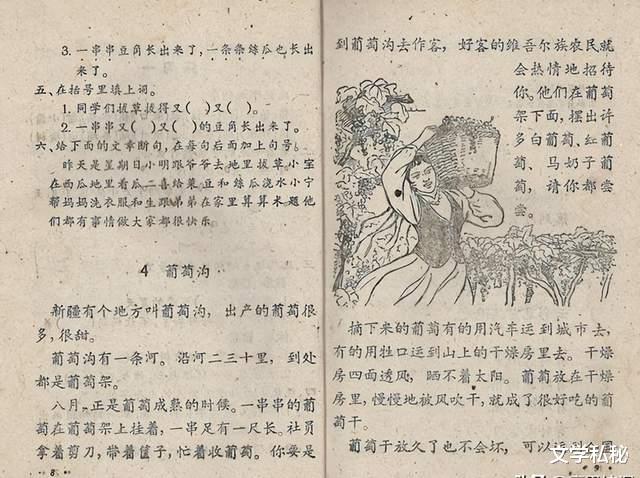 3. 一串串豆角长出来了，一条条丝瓜也长出
来了。
五、在括号里填上词。
1. 同学们拔草拔得又（ ）又（ ）。
2. 一串串又（ ）又（ ）的豆角长出来了。
六、给下面的文章断句，在每句后面加上句号。
昨天是星期日小明跟爷爷去地里拔草小宝
在西瓜地里看瓜二喜给菜豆和丝瓜浇水小宁
帮妈妈洗衣服和生跟弟弟在家里算算术题他
们都有事情做大家都很快乐
4 葡萄沟
新疆有个地方叫葡萄沟，出产的葡萄很
多，很甜。
葡萄沟有一条河。沿河二三十里，到处
都是葡萄架。
八月，正是葡萄成熟的时候。一串串的葡
萄在葡萄架上挂着，一串足有一尺长。社员
拿着剪刀，带着筐子，忙着收葡萄。你要是
·8·
到葡萄沟去作客，好客的维吾尔族农民就
会热情地招待
你。他们在葡萄
架下面，摆出许
多白葡萄、红葡
萄、马奶子葡
萄，请你都尝
尝。
摘下来的葡萄有的用汽车运到城市去，
有的用牲口运到山上的干燥房里去。干燥
房四面透风，晒不着太阳。葡萄放在干燥
房里，慢慢地被风吹干，就成了很好吃的葡
萄干。
葡萄干放久了也不会坏，可以运到
·9·
文学私秘